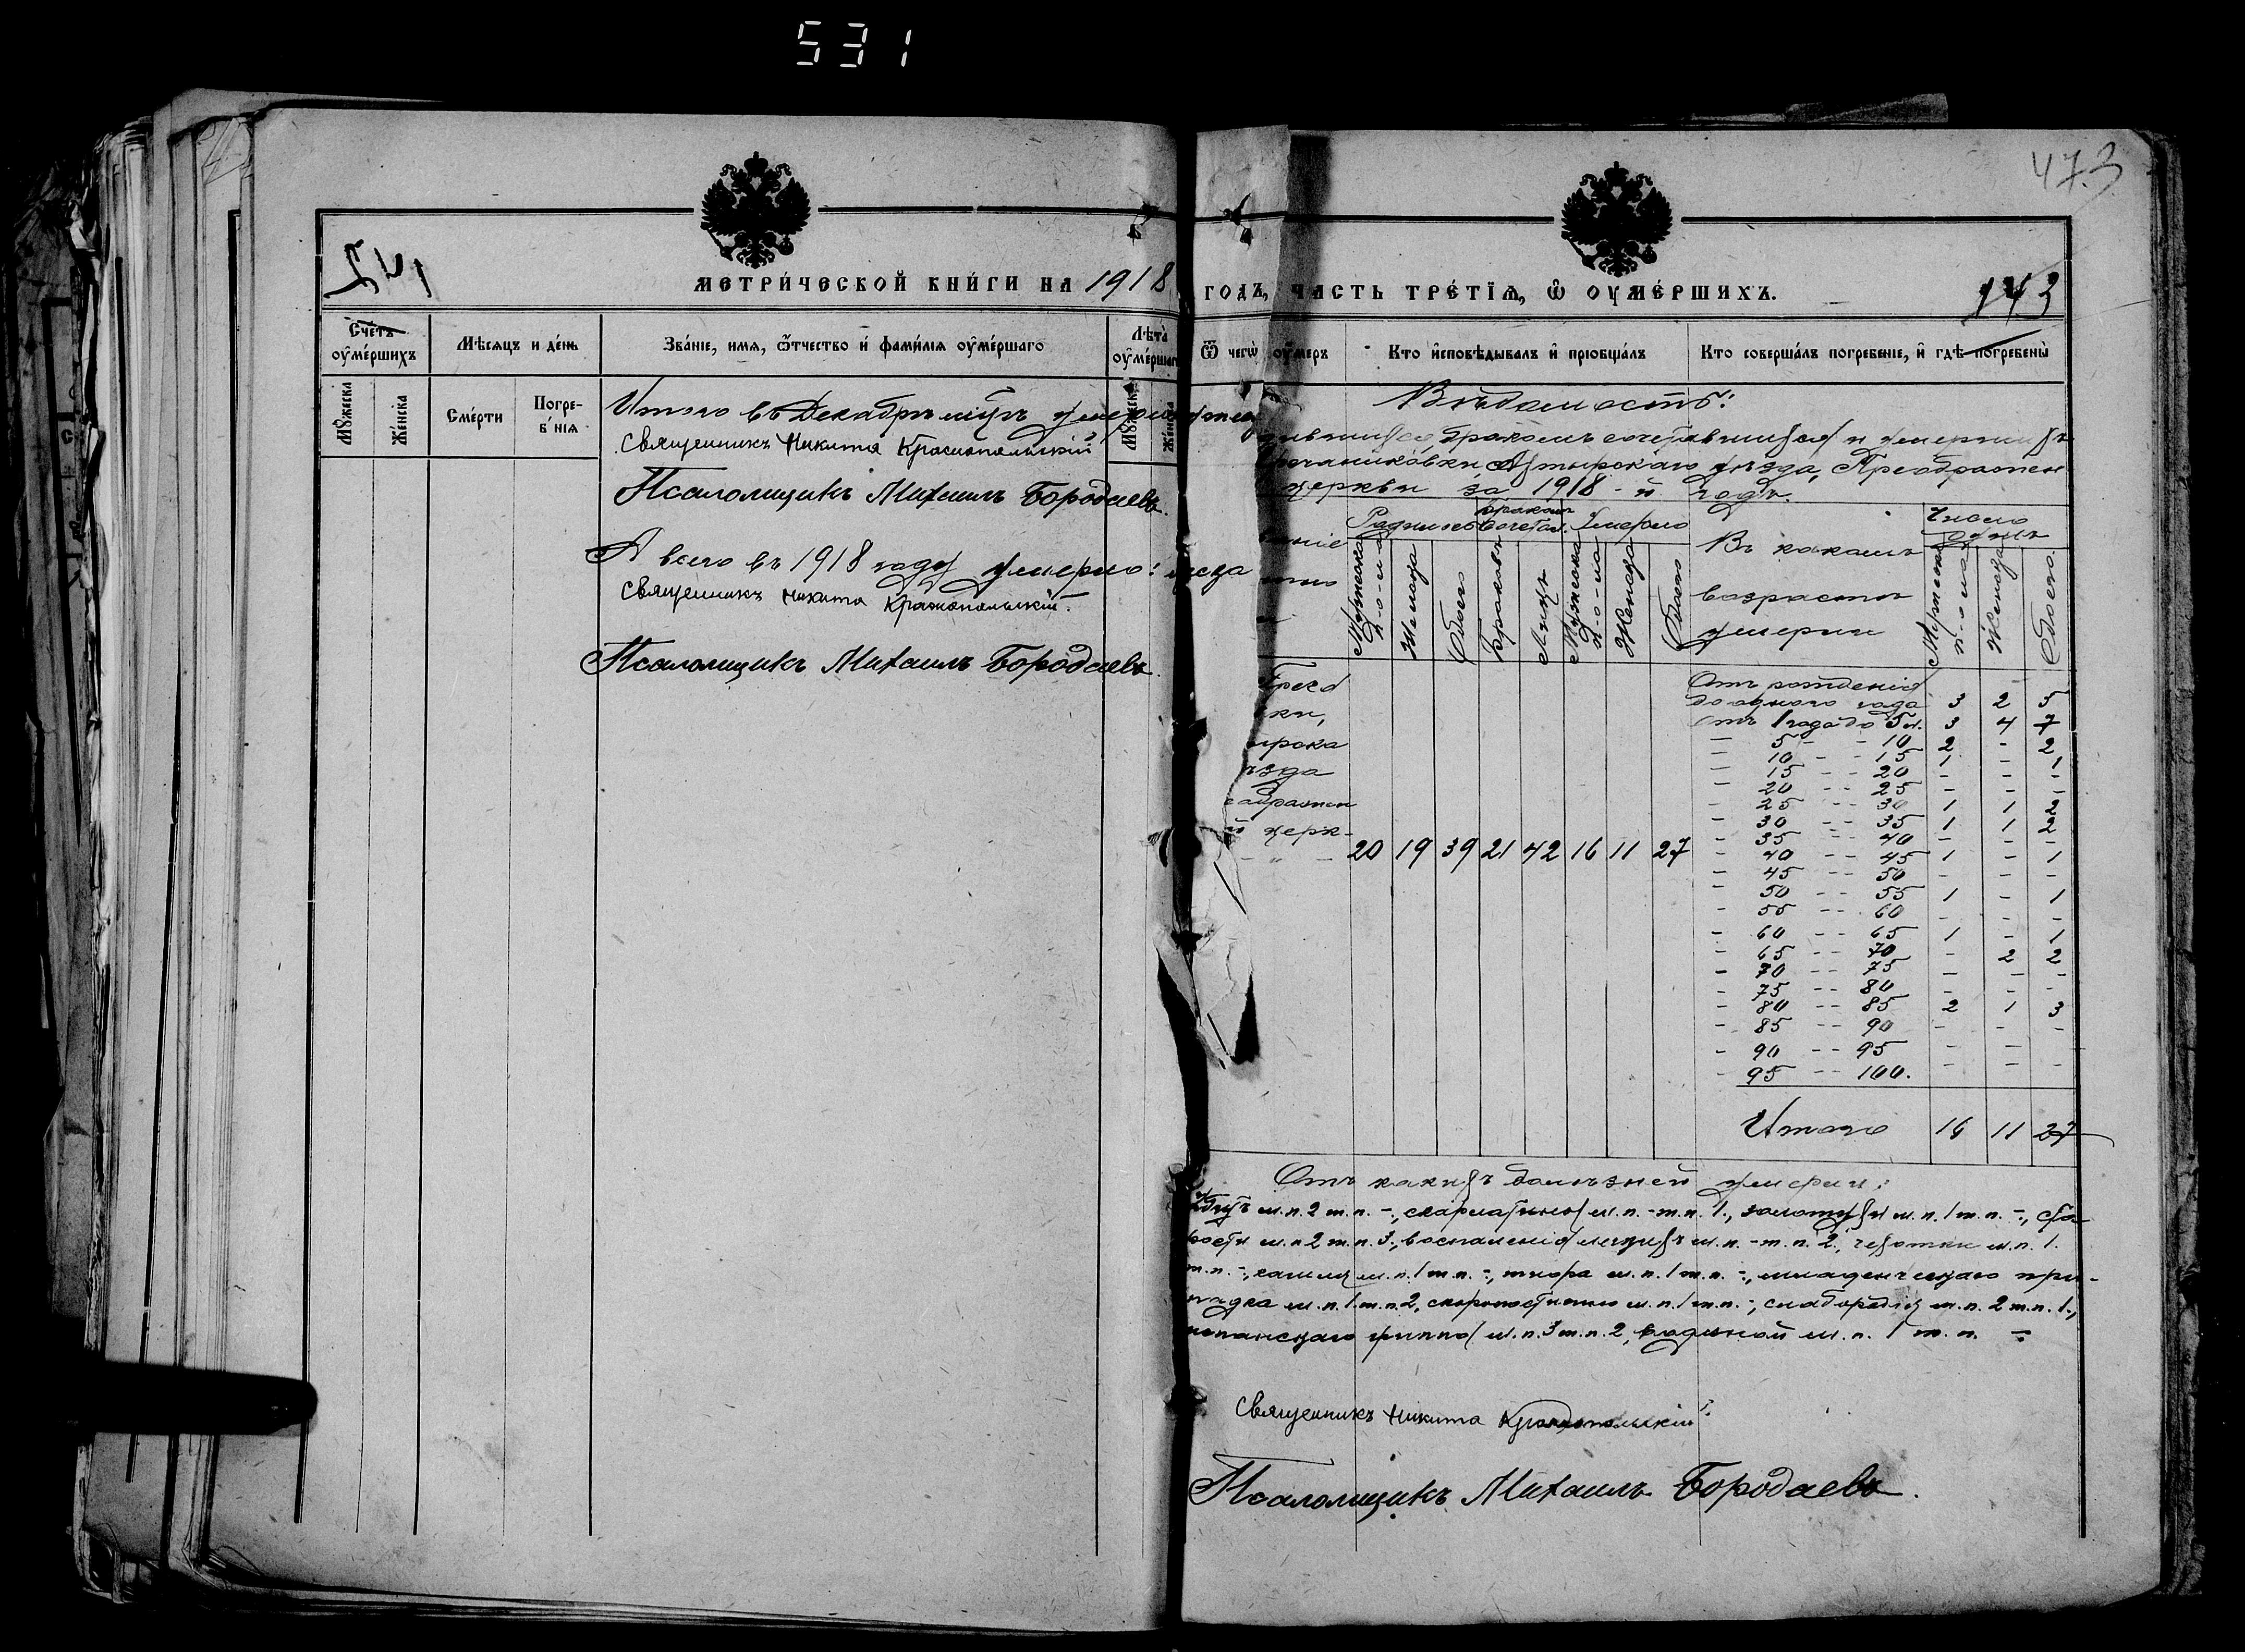 531
473
метри́ческой кни́ги на 1918
годъ, часть тре́тїѧ, ѡ҆ оу҆ме́ршихъ.
143
Сче́тъ оу҆ме́ршихъ
Мѣсѧцъ и де́нь
Зва́нїе, имѧ, ѻ҆́тчество и҆ фами́лїѧ оу҆ме́ршагѡ
Лѣта̀ оу҆ме́ршаг
Ѿ чегѡ̀ оу҆́меръ
Кто и҆сповѣ́дывалъ и҆ прїобща́лъ
Кто соверша́лъ погребенїе, и҆ гдѣ̀ погребены̀
Мꙋжеска
Же́нска
Сме́рти
Погребе́нїя
Мꙋжеска
Же́нска
Итого въ Декабрѣ мцѣ умерло
Священникъ Никита Краснопольскій
Псаломщикъ Михаилъ Бородаевъ.
А всего въ 1918 году умерло:
Священникъ Никита Краснопольскій.
Псаломщикъ Михаилъ Бородаевъ.
Вѣдомость:
бракомъ сочетавшихся и умершихъ
Ахтырскаго уѣзда, Преображен
церкви за 1918-й годъ.
Родилось
Бракомъ сочетал.
Умерло
Въ какомъ возрастѣ умерли
Число душъ
Мужеска п-о-ла
Женска
Обоего
Браковъ
Лицъ
Мужеска п-о-ла
Женска
Обоего
Мужеска п-о-ла
Женска
Обоего
ки,
ырска
ѣзда
ображен
й церк-
20 19 39 21 42 16 11 27
Отъ рожденія
до одного года 3 2 5
отъ 1 года до 5 л. 3 4 7
- 5 - - 10 2 - 2
- 10 - - 15 1 - 1
- 15 - - 20 - - -
- 20 - - 25 - - -
- 25 - - 30 1 1 2
- 30 - - 35 1 1 2
- 35 - - 40 - - -
- 40 - - 45 1 - 1
- 45 - - 50 - - -
- 50 - - 55 1 - 1
- 55 - - 60 - - -
- 60 - - 65 1 - 1
- 65 - - 70 - 2 2
- 70 - - 75 - - -
- 75 - - 80 - - -
- 80 - - 85 2 1 3
- 85 - - 90 - - -
- 90 - - 95 - -
- 95 - - 100. - - -
Итого 16 11 27
Отъ какихъ болѣзней умерли:
м.п. 2 ж.п. -, скарлатины м.п. - ж.п. 1., золотухи м.п. 1 ж.п. -., ста-
рости м.п 2 ж.п. 3., воспаленія легкихъ м.п. - ж.п. 2., чахотки м.п. 1.
ж.п. -., кашля м.п. 1 ж.п. -., м.п. 1 ж.п. -., младенческаго при-
падка м.п. 1. ж.п. 2, скоропостижно м.п. 1 ж.п. -., м.п. 2 ж.п. 1.,
испанскаго гриппа м.п. 3 ж.п. 2, водяной м.п. 1 ж.п. -.
Священникъ Никита Краснопольскій.
Псаломщикъ Михаилъ Бородаевъ.